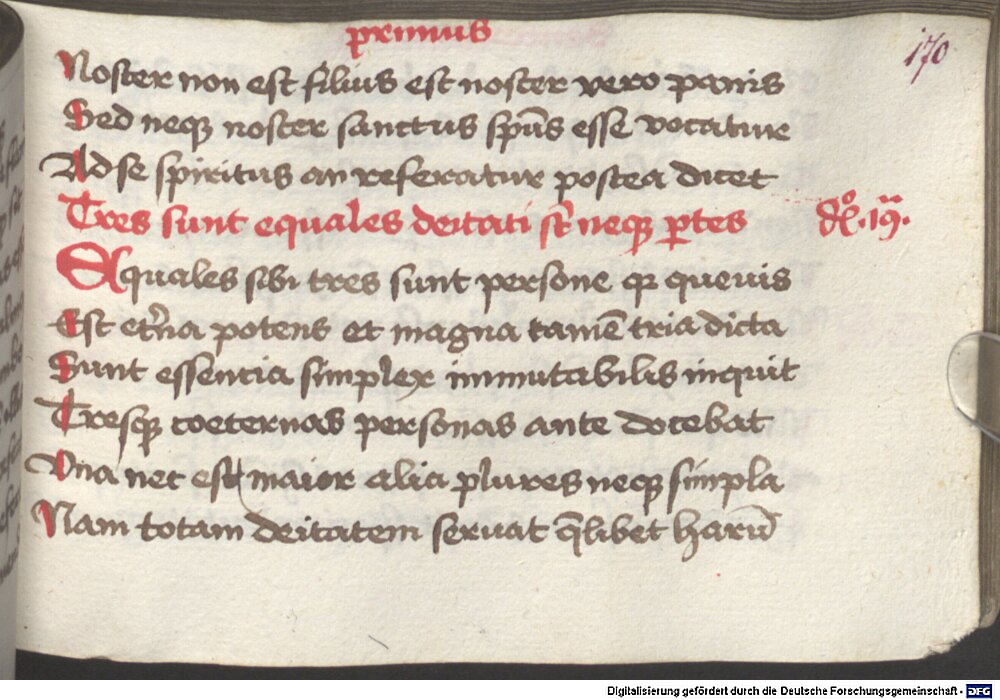 primus
170
Noster non est filius est noster vero panis
Sed neqꝫ noster sanctus sp̅us esse vocatiue
Ad se spiritus an referatur postea dicet
Tres sunt equales deitati sꝫ neqꝫ ꝑtes
Equales sibi tres sunt persone qꝛ queuis
Est et̅na potens et magna tame̅ tria dicta
Sunt essentia simplex immutabilis inquit
Tresqꝫ coeternas personas ante docebat
Vna nec est maior alia plures neqꝫ simpla
Nam totam deitatem seruat q̅libet haru̅
Digitalisierung gefördert durch die Deutsche Forschungsgemeinschaft - DFG